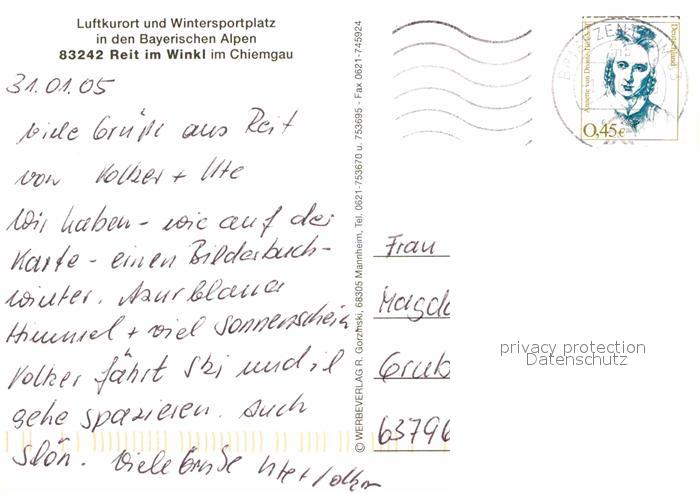 Luftkurort und Wintersportplatz
in den Bayerischen Alpen
83242 Reit im Winkl im Chiemgau
31.01.05
Viele Grüße aus Reit
von Volker + Ute
Wir haben - wie auf der
Karte - einen Bilderbuch-
winter. Azurblauer
Himmel + viel Sonnenschein
Volker fährt Ski und ich
gehe spazieren. Auch
schön. Viele Grüße Ute + Volker
© WERBEVERLAG R. Gorzinski, 68305 Mannheim, Tel. 0621-753670 u. 753695 - Fax 0621-745924
Deutschland
Annette von Droste-Hülshoff
0,45€
BRIEFZENTRUM
Frau
Magda
Grub
63796
privacy protection
Datenschutz